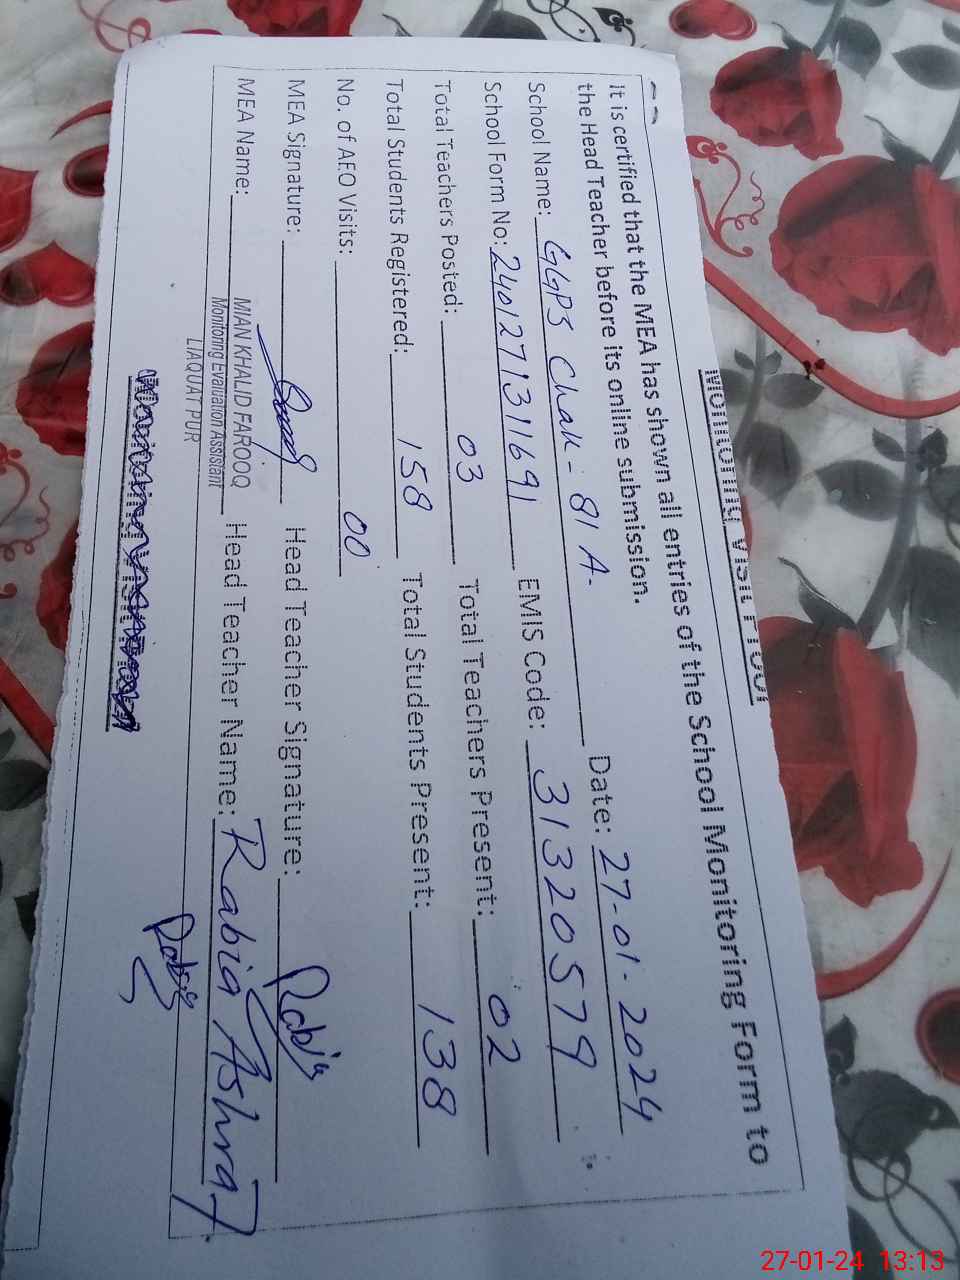 Monitoring Visit Proof
It is certified that the MEA has shown all entries of the School Monitoring Form to
the Head Teacher before its online submission.
School Name: GGPS Chak - 81 A. Date: 27-01-2024
School Form No: 2401271311691 EMIS Code: 31320579
Total Teachers Posted: 03 Total Teachers Present: 02
Total Students Registered: 158 Total Students Present: 138
No. of AEO Visits: 00
MEA Signature: Head Teacher Signature: Rabia
MEA Name: MIAN KHALID FAROOQ Head Teacher Name: Rabia Ashraf.
Monitoring Evaluation Assistant
LIAQUAT PUR
Rabia
27-01-24 13:13